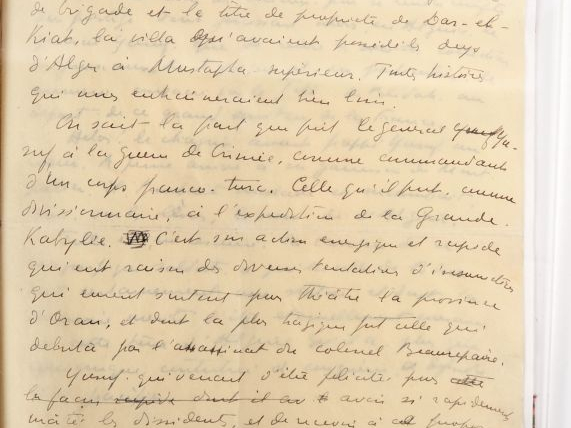 de brigade et le titre de propriété de Dar-el-
Kiab, la villa qu'avaient possédé les deys
d'Alger à Mustapha supérieur. Toutes histoires
qui nous entraîneraient bien loin.
On sait la part que prit le général Yu-
suf à la guerre de Crimée, comme commandant
d'un corps franco-turc. Celle qu'il prit, comme
divisionnaire, à l'expédition de la Grande
Kabylie. C'est son action énergique et rapide
qui eut raison des diverses tentatives d'insurrections
qui eurent surtout pour théâtre la province
d'Oran, et dont la plus tragique fut celle qui
débuta par l'assassinat du colonel Beauprêtre.
Yusuf qui venait d'être félicité pour
la façon rapide dont il av avoir si rapidement
maté les dissidents, et de recevoir à propos